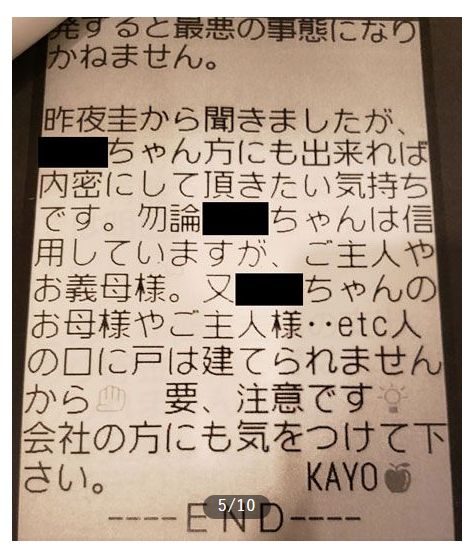 発すると最悪の事態になり
かねません。
昨夜圭から聞きましたが、
ちゃん方にも出来れば
内密にして頂きたい気持ち
です。勿論ちゃんは信
用していますが、ご主人や
お義母様。又ちゃんの
お母様やご主人様‥etc人
の口に戸は建てられません
から✊ 要、注意です💡
会社の方にも気をつけて下
さい。 KAYO🍎
5/10
----END----